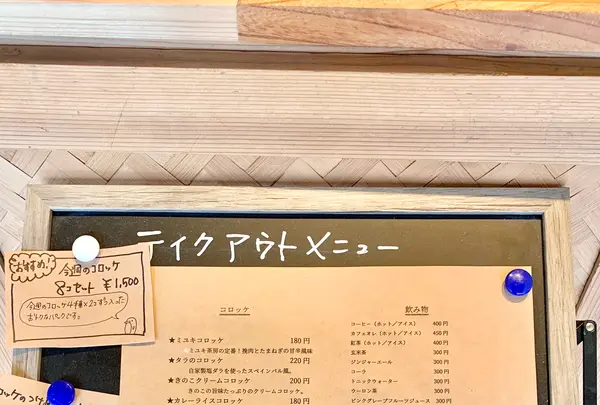 ティクアウトメニュー
おすすめ!
今週のコロッケ
8コセット ¥1,500
今週のコロッケ4種×2コずつ入った
おトクなパックです。
コロッケ
★ミユキコロッケ 180円
ミユキ茶房の定番!挽肉とたまねぎの甘辛風味
★タラのコロッケ 220円
自家製塩ダラを使ったスペインバル風。
★きのこクリームコロッケ 200円
きのこの旨味たっぷりのクリームコロッケ。
★カレーライスコロッケ 180円
飲み物
コーヒー(ホット/アイス) 400円
カフェオレ(ホット/アイス) 450円
紅茶(ホット/アイス) 400円
玄米茶 300円
ジンジャーエール 300円
コーラ 300円
トニックウォーター 300円
ウーロン茶 300円
ピンクグレープフルーツジュース 300円